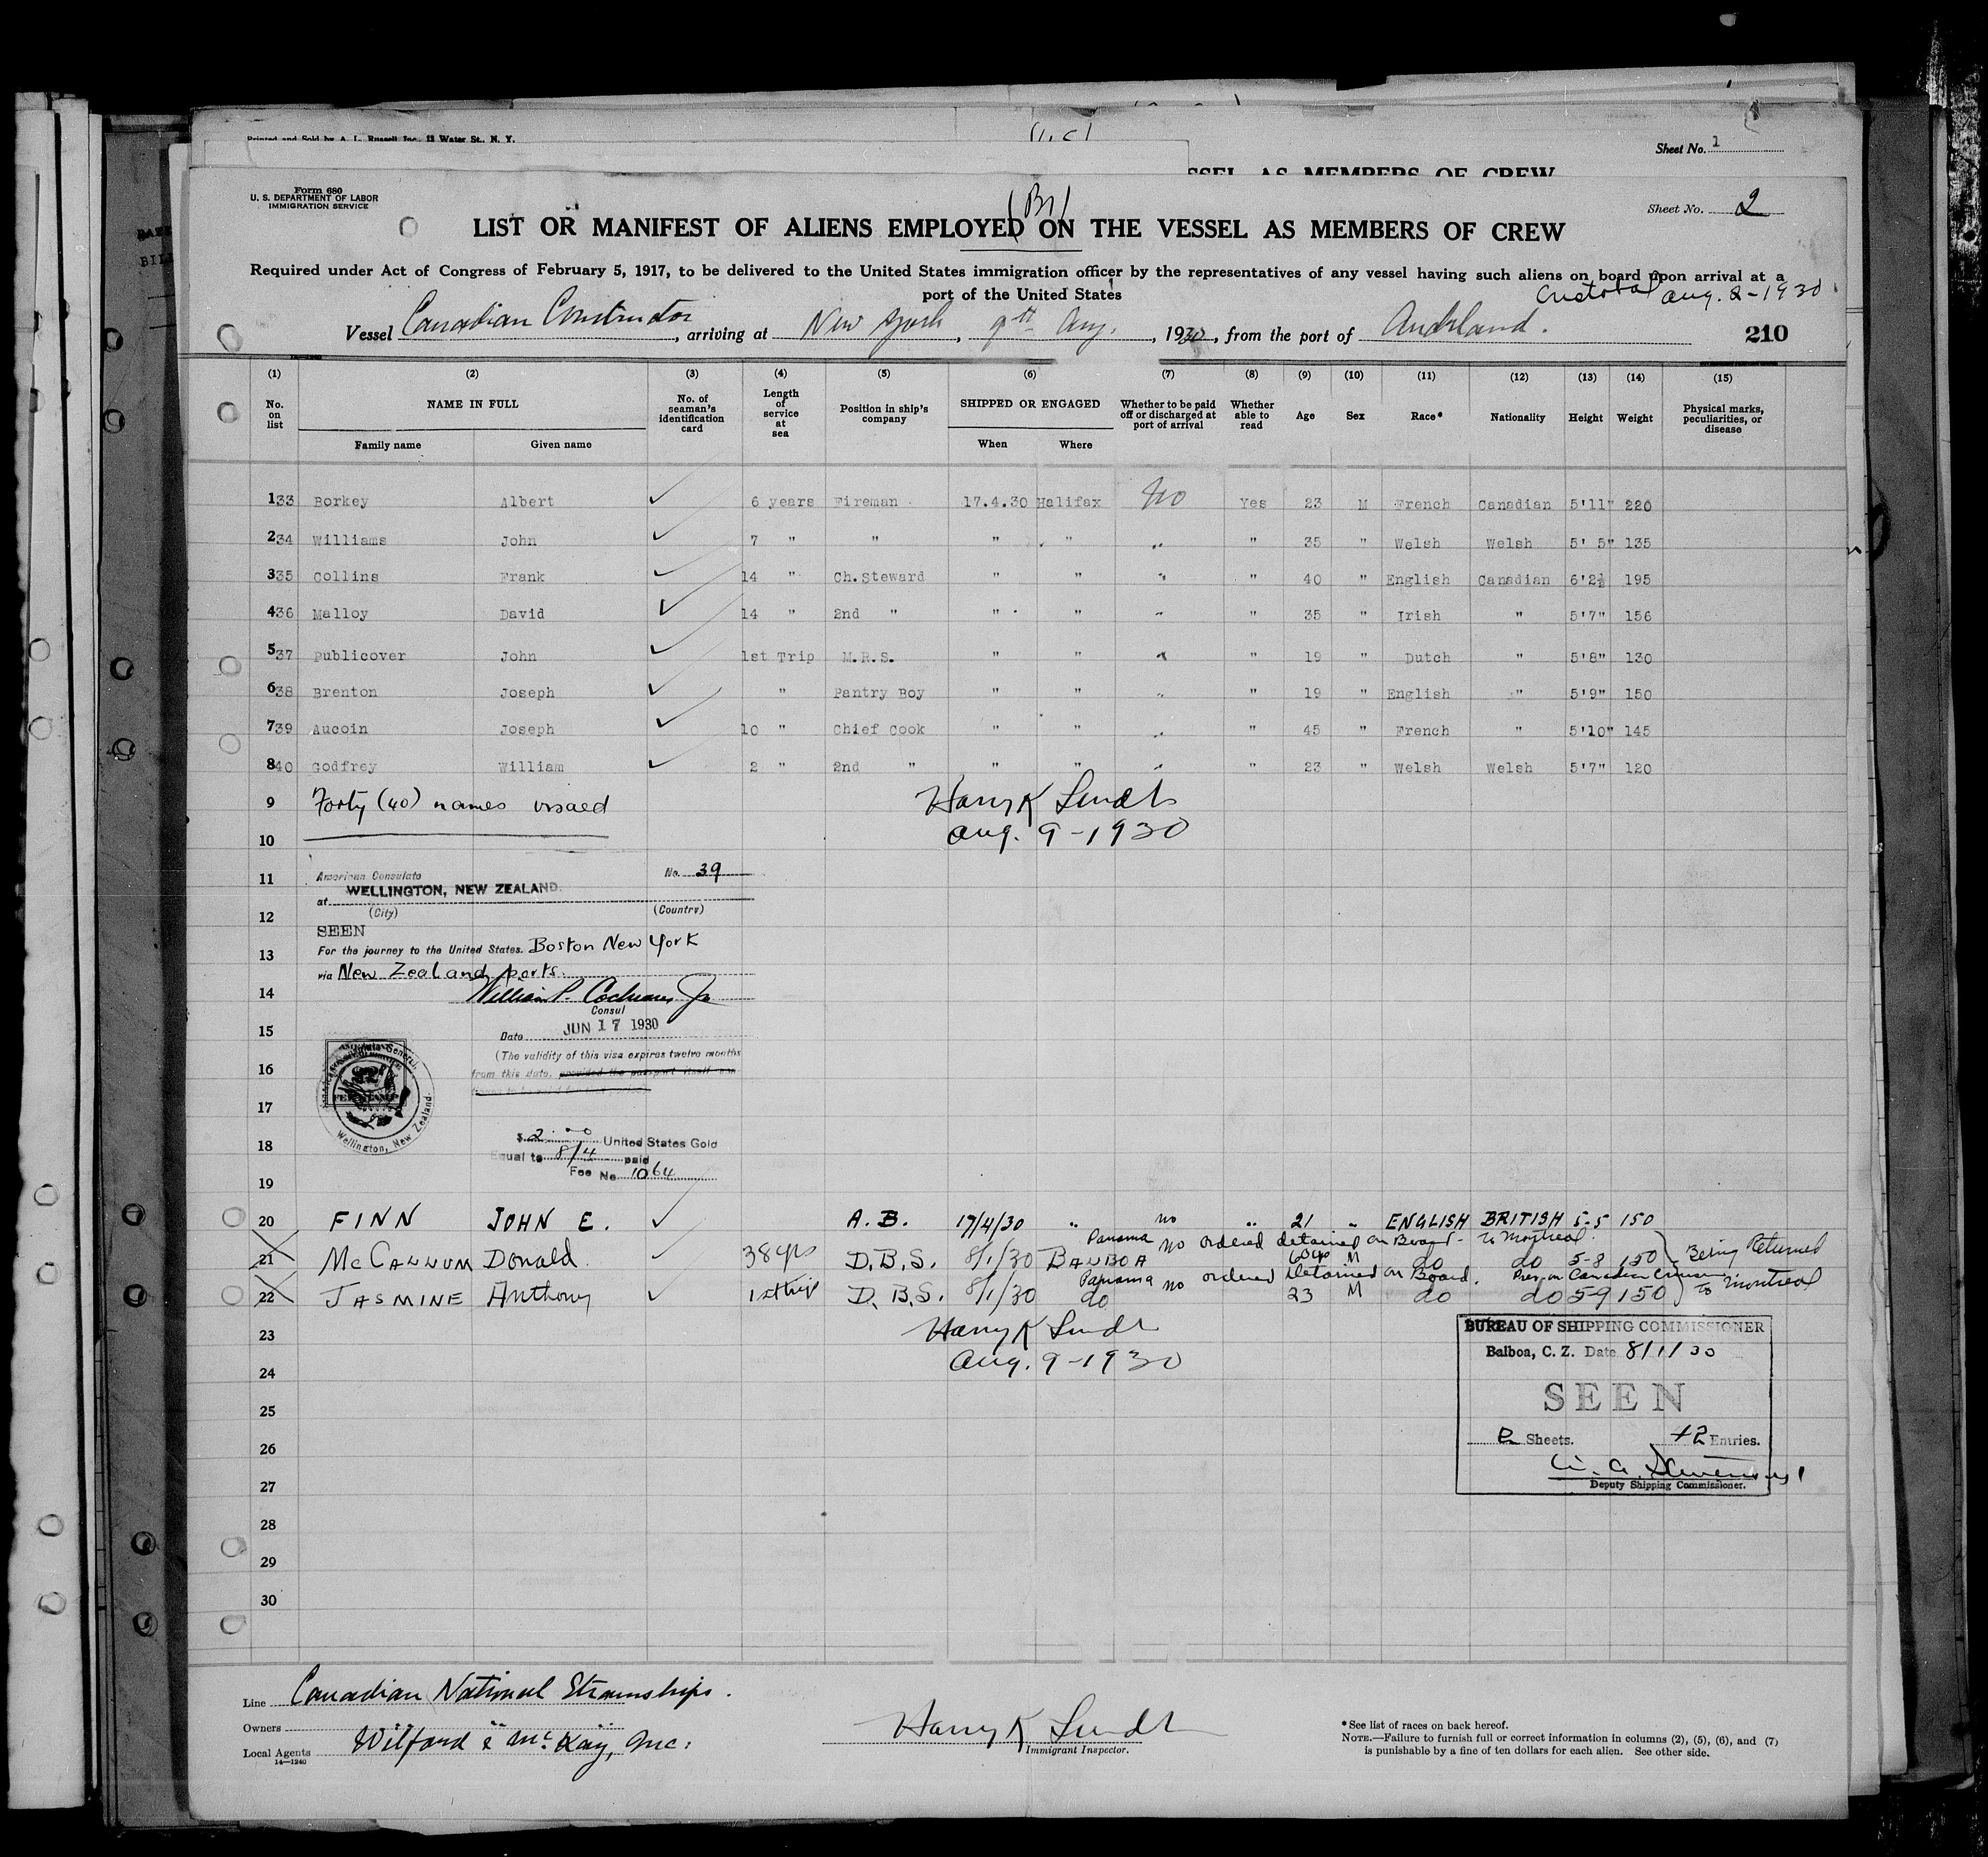 Printed and Sold by A. L. Russell Inc. 13 Water St., N. Y.
Sheet No. 1
SSEL AS MEMBERS OF CREW
Form 680
U. S. DEPARTMENT OF LABOR
IMMIGRATION SERVICE
(Br)
Sheet No. 2
LIST OR MANIFEST OF ALIENS EMPLOYED ON THE VESSEL AS MEMBERS OF CREW
Required under Act of Congress of February 5, 1917, to be delivered to the United States immigration officer by the representatives of any vessel having such aliens on board upon arrival at a
port of the United States
Cristobal Aug. 2-1930
Vessel Canadian Constructor, arriving at New York, 9th Aug., 1930, from the port of Auckland.
210
(1) (2) (3) (4) (5) (6) (7) (8) (9) (10) (11) (12) (13) (14) (15)
No. on list NAME IN FULL Family name Given name No. of seaman's identification card Length of service at sea Position in ship's company SHIPPED OR ENGAGED When Where Whether to be paid off or discharged at port of arrival Whether able to read Age Sex Race* Nationality Height Weight Physical marks, peculiarities, or disease
1 33 Borkey Albert 6 years Fireman 17.4.30 Halifax No Yes 23 M French Canadian 5'11" 220
2 34 Williams John 7 " " " " " " 35 " Welsh Welsh 5' 5" 135
3 35 Collins Frank 14 " Ch.Steward " " " " 40 " English Canadian 6'2½ 195
4 36 Malloy David 14 " 2nd " " " " " 35 " Irish " 5'7" 156
5 37 Publicover John 1st Trip M.R.S. " " " " 19 " Dutch " 5'8" 130
6 38 Brenton Joseph " Pantry Boy " " " " 19 " English " 5'9" 150
7 39 Aucoin Joseph 10 " Chief Cook " " " " 45 " French " 5'10" 145
8 40 Godfrey William 2 " 2nd " " " " " 23 " Welsh Welsh 5'7" 120
9 Forty (40) names visaed Harry K Lundt
10 Aug. 9-1930
11 American Consulate No. 39
at WELLINGTON, NEW ZEALAND.
12 (City) (Country)
SEEN
13 For the journey to the United States. Boston New York
via New Zealand ports.
14 William P. Cochran Jr
Consul
15 Date JUN 17 1930
(The validity of this visa expires twelve months
16 from this date, provided the passport itself con
17
Wellington, New Zealand.
18 $ 2.00 United States Gold
Equal to 8/4 paid
Fee No. 1064
19
20 FINN JOHN E. A.B. 17/4/30 " no " 21 " ENGLISH BRITISH 5-5 150
Panama no ordered detained on Board - to Montreal.
21 McCALLUM Donald 38 yrs D.B.S. 8/1/30 BALBOA M do do 5-8 150 Being Returned
Panama no ordered detained on Board.
22 JASMINE Anthony 1st trip D.B.S. 8/1/30 do 23 M do do 5-9 150 to Montreal
23 Harry K Lundt
24 Aug. 9-1930
BUREAU OF SHIPPING COMMISSIONER
Balboa, C. Z. Date 8/1/30
SEEN
2 Sheets. 42 Entries.
Deputy Shipping Commissioner.
25
26
27
28
29
30
Line Canadian National Steamships.
Owners " " "
Local Agents Wilford & McKay, Inc.
14—1240
Harry K Lundt
Immigrant Inspector.
*See list of races on back hereof.
NOTE.—Failure to furnish full or correct information in columns (2), (5), (6), and (7)
is punishable by a fine of ten dollars for each alien. See other side.